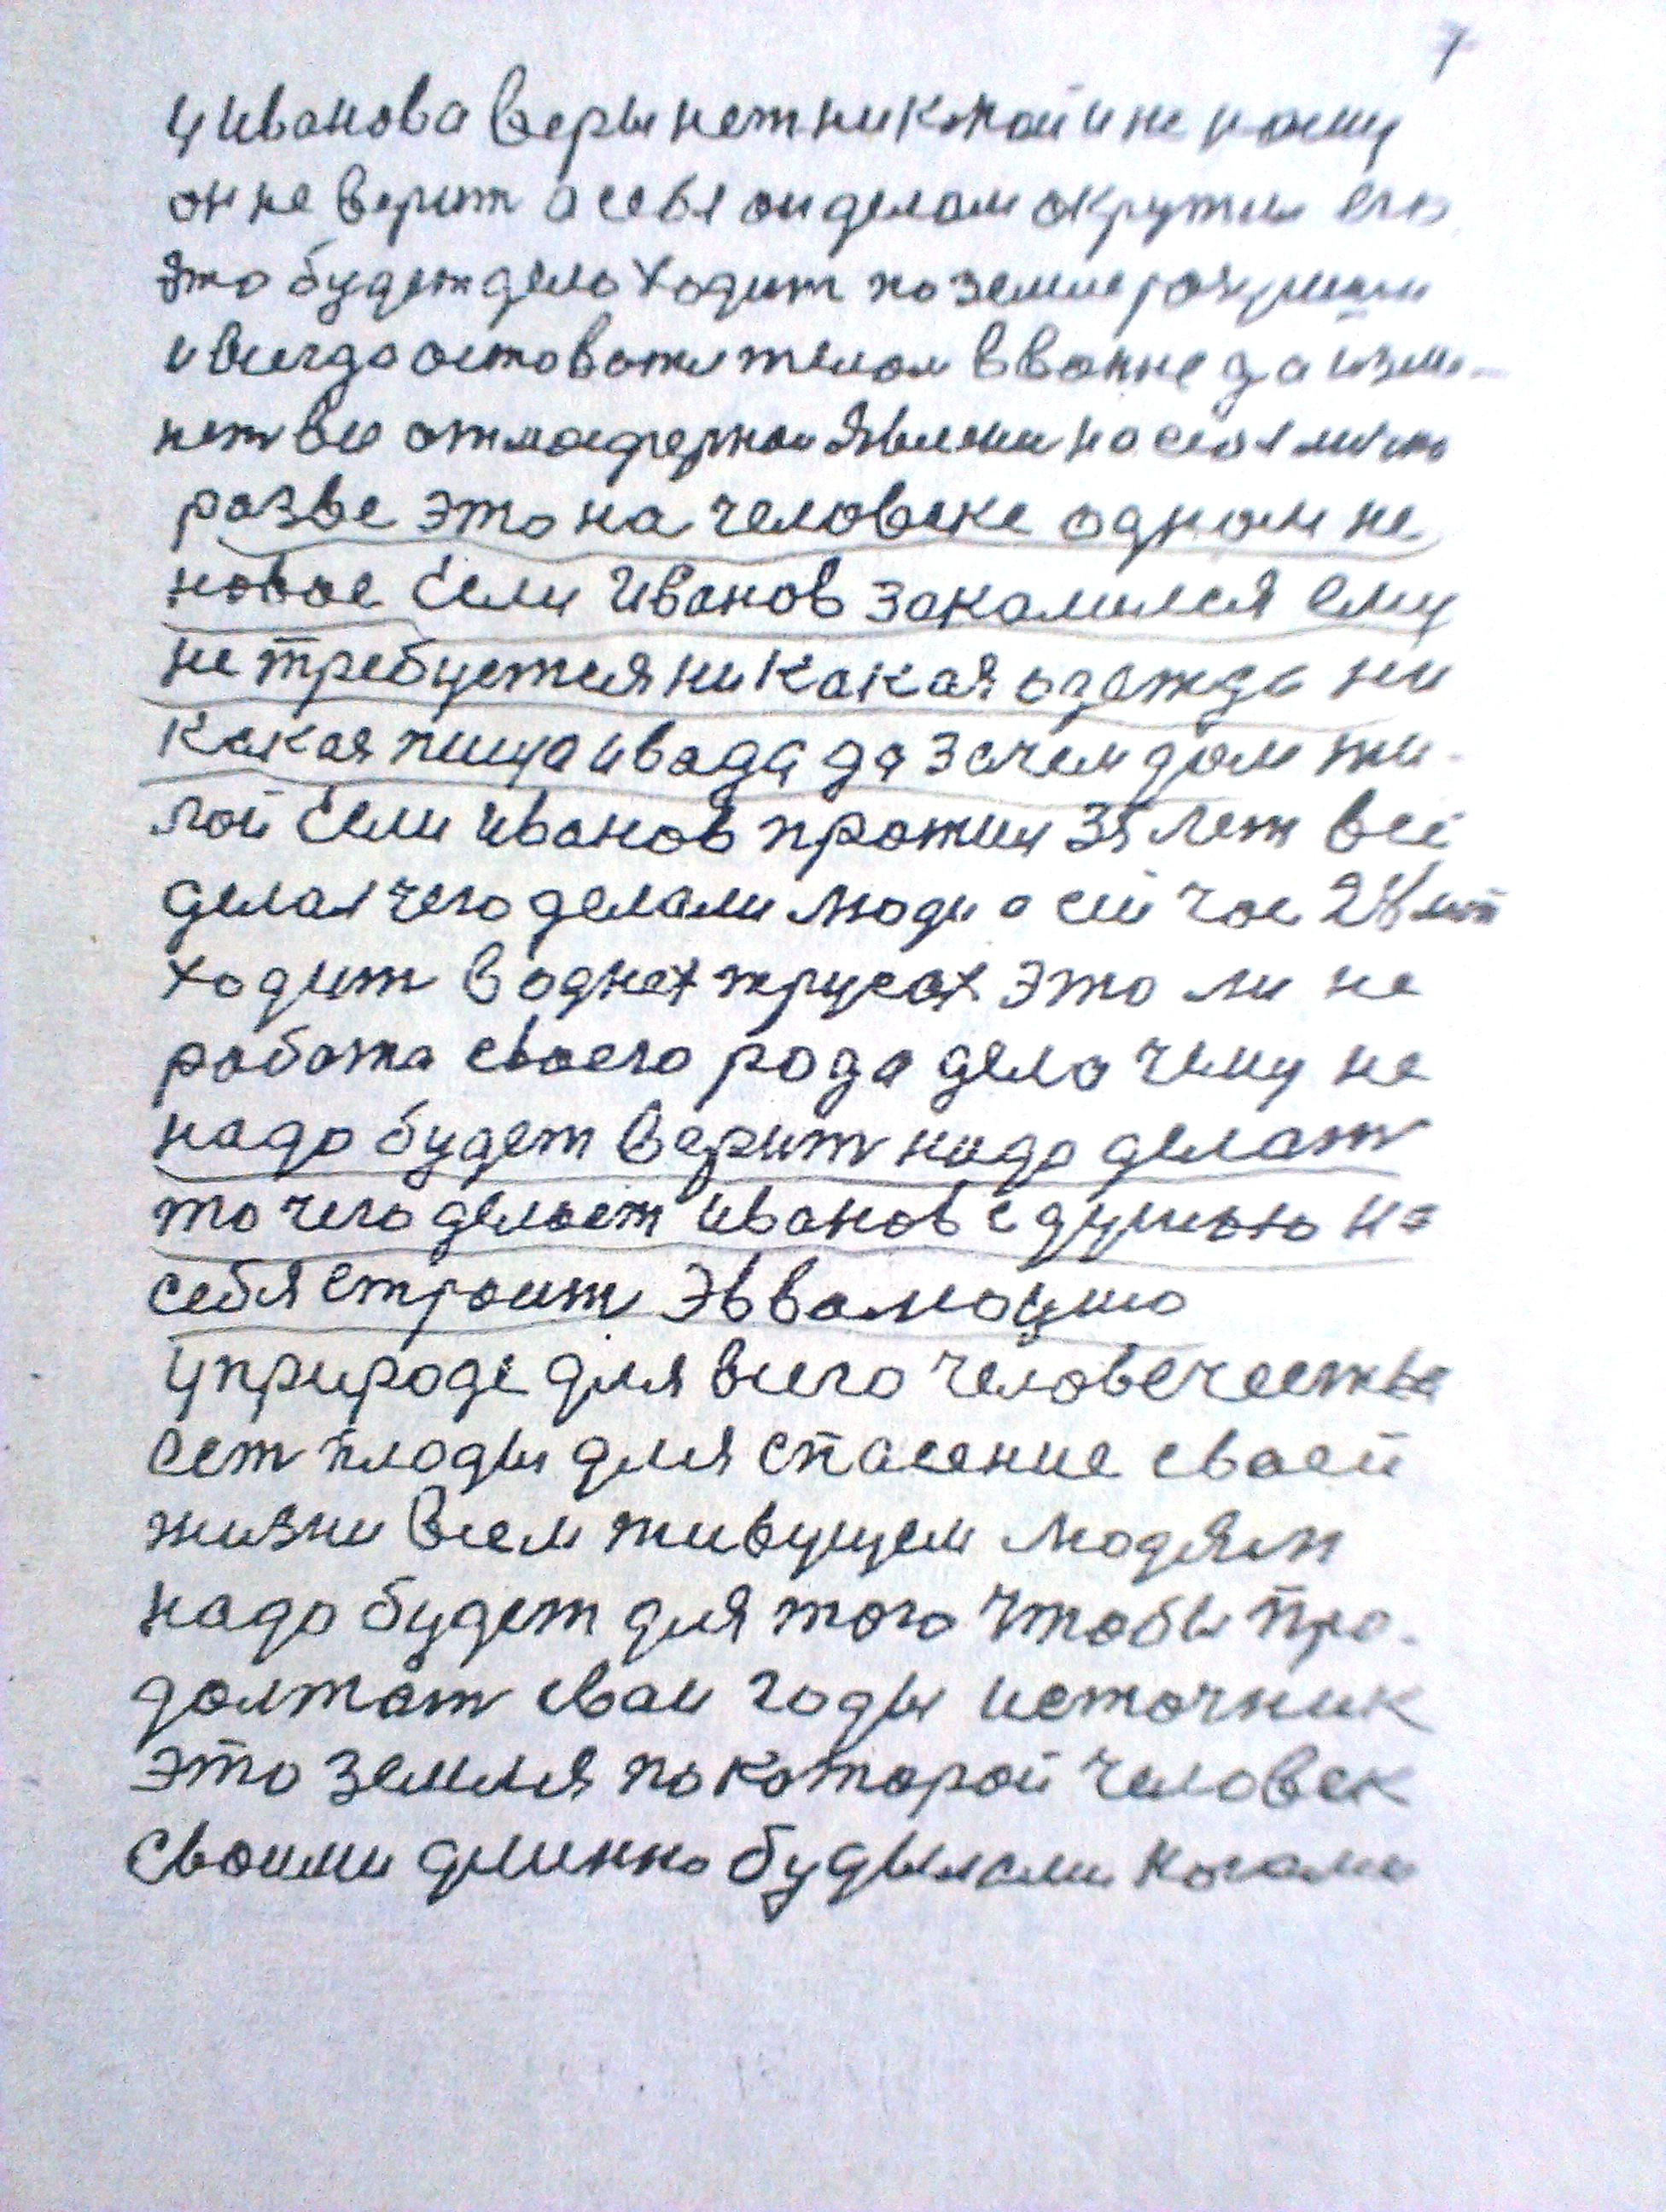 7
у Иванова веры нет никакой и не кому
он не верит а себя он делом окружил его
это будет дело ходит по земле
и всегда оставатся телом в ванне да изме-
нет все атмосферное явлении на себя лично
разве это на человеке одном не
новое Если Иванов закалился ему
не требуется никакая одежда ни
какая пища и вада да зачем дом жи-
лой Если Иванов прожил 35 лет всё
делал чего делали люди а сий час 28 лет
ходит в однех трусах это ли не
работа своего рода дело чему не
надо будет верит надо делат
то чего делает Иванов с душою на
себя строит Эвволюцию
у природе для всего человечества
Ест плоды для спасение своей
жизни всем живущем людям
надо будет для того чтобы про-
должат сваи годы источник
это земля по которой человек
своими длинно будылами ногами